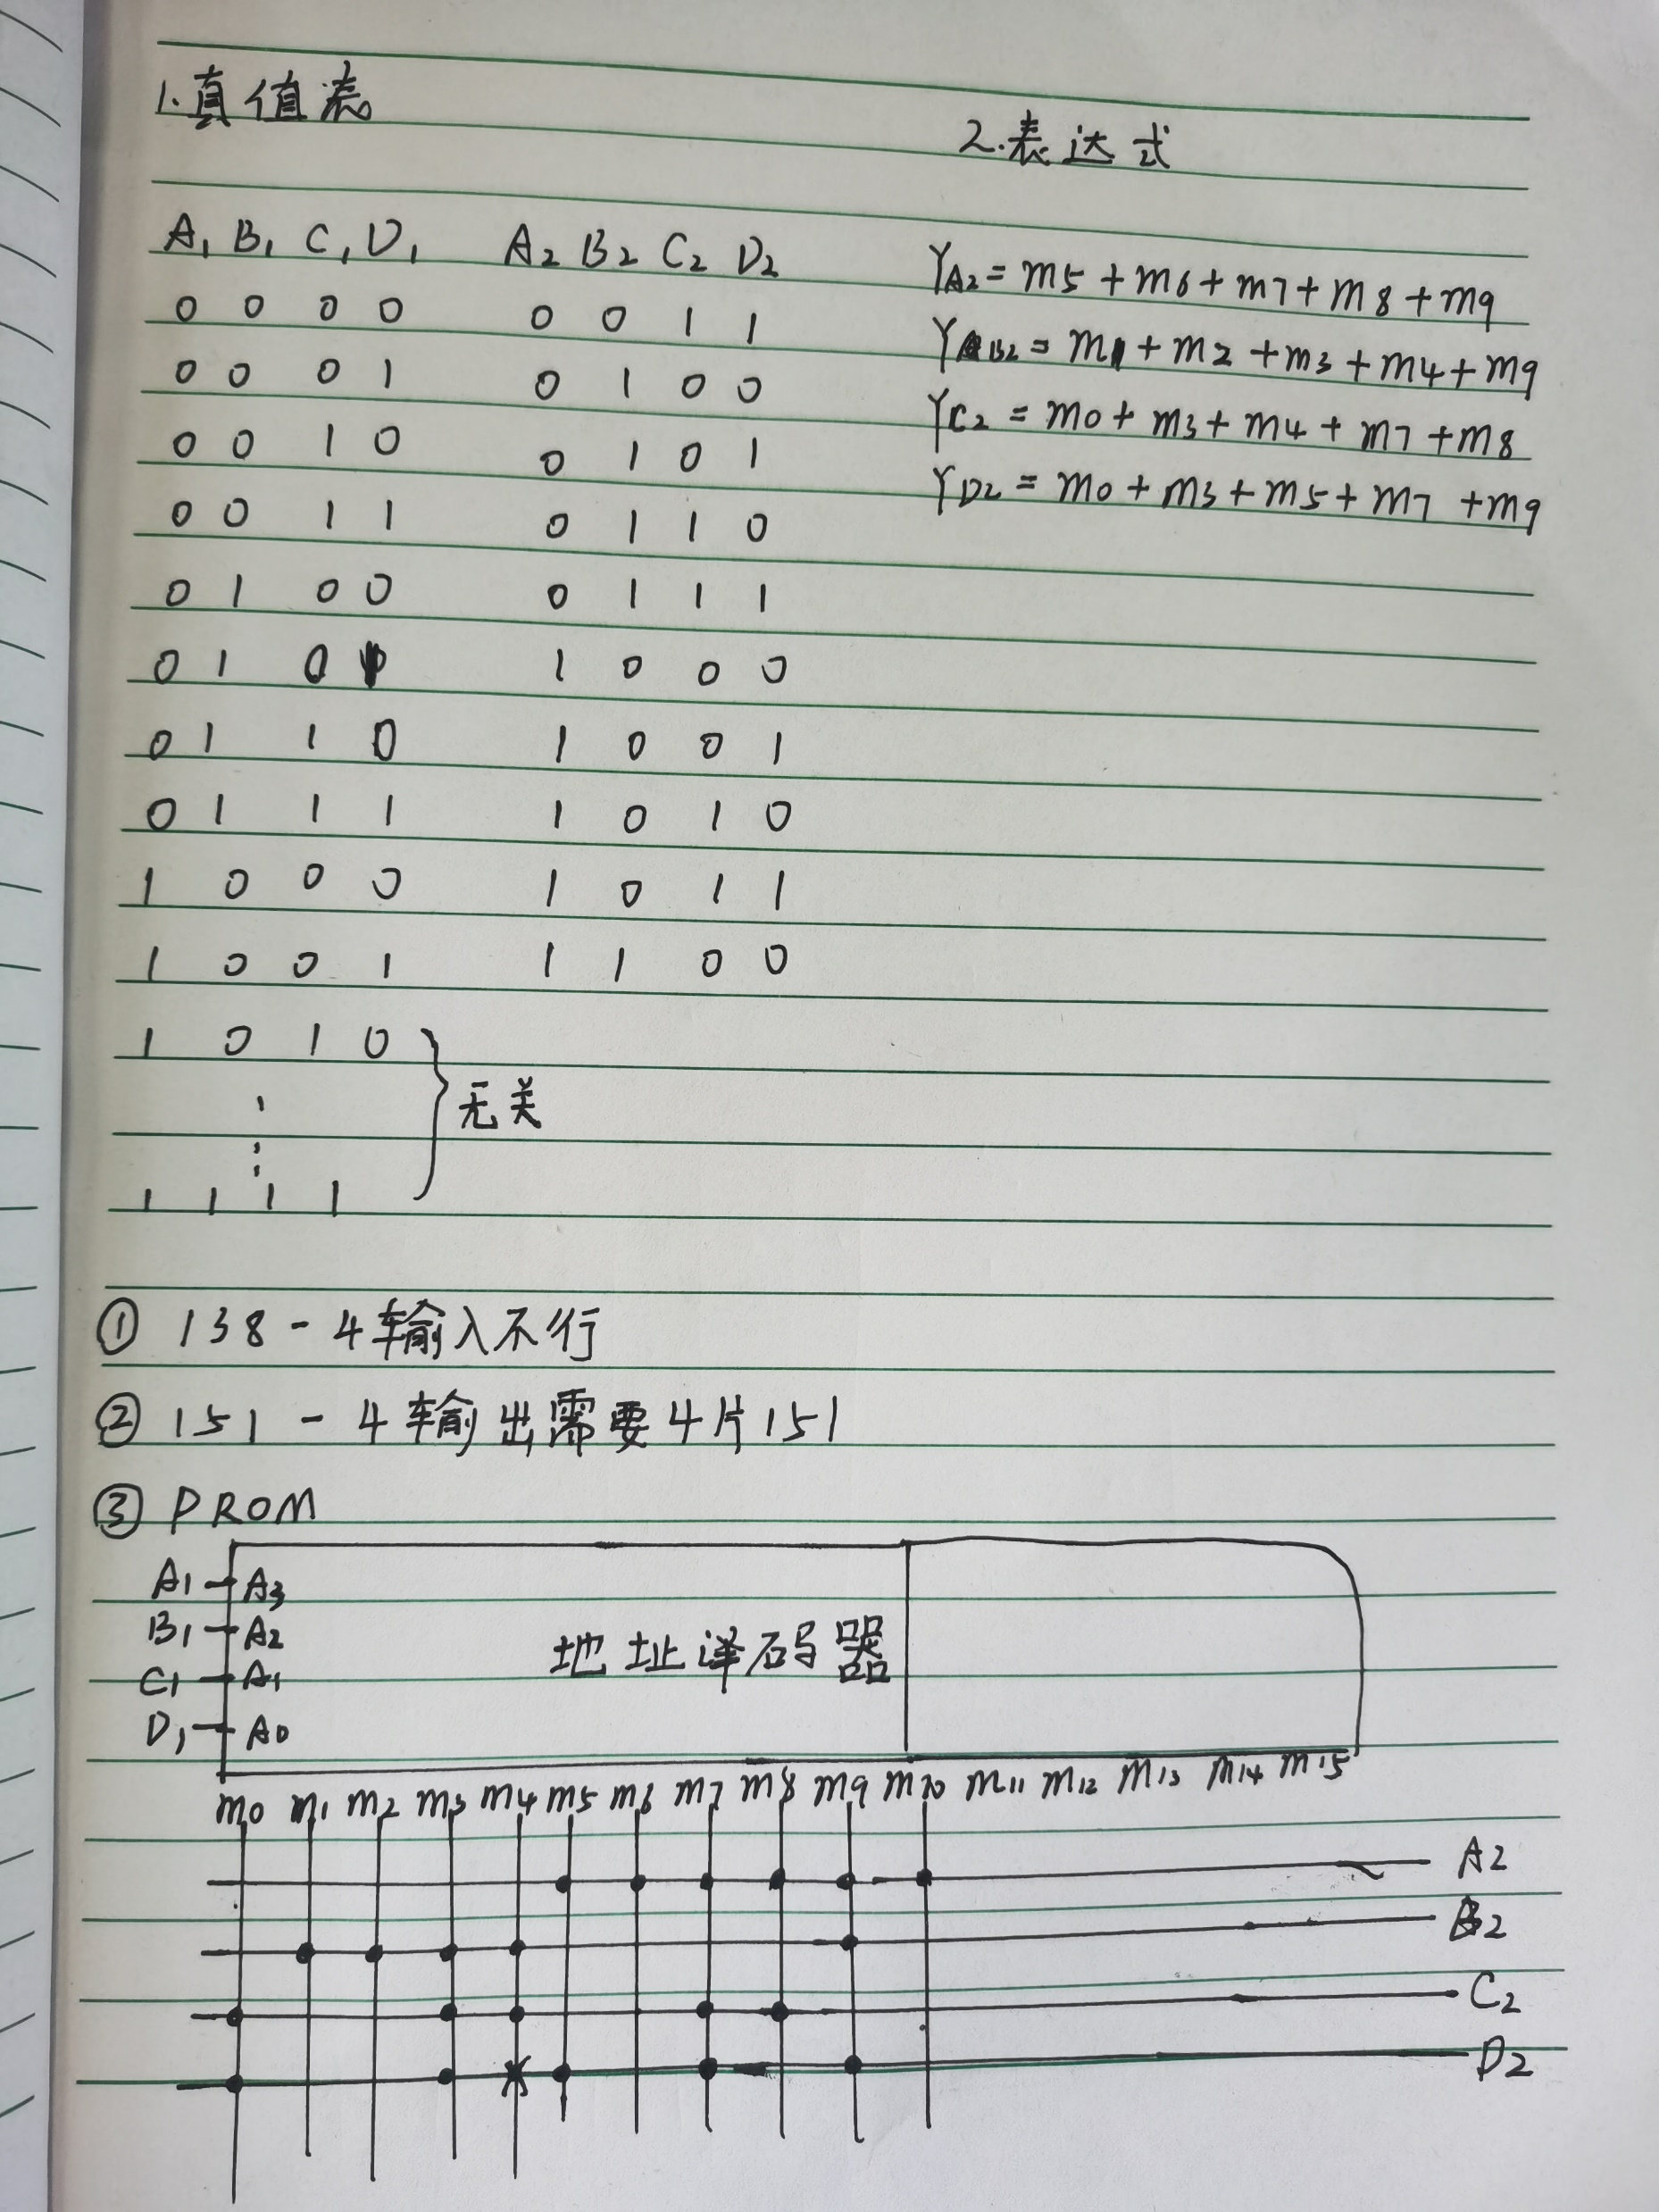 1.真值表
2.表达式
A1 B1 C1 D1 A2 B2 C2 D2
0 0 0 0 0 0 1 1
0 0 0 1 0 1 0 0
0 0 1 0 0 1 0 1
0 0 1 1 0 1 1 0
0 1 0 0 0 1 1 1
0 1 0 1 1 0 0 0
0 1 1 0 1 0 0 1
0 1 1 1 1 0 1 0
1 0 0 0 1 0 1 1
1 0 0 1 1 1 0 0
1 0 1 0
无关
1 1 1 1
YA2 = m5 + m6 + m7 + m8 + m9
YB2 = m1 + m2 + m3 + m4 + m9
YC2 = m0 + m3 + m4 + m7 + m8
YD2 = m0 + m3 + m5 + m7 + m9
① 138 - 4输入不行
② 151 - 4输出需要4片151
③ PROM
A1 A3
B1 A2
C1 A1
D1 A0
地址译码器
m0 m1 m2 m3 m4 m5 m6 m7 m8 m9 m10 m11 m12 m13 m14 m15
A2
B2
C2
D2